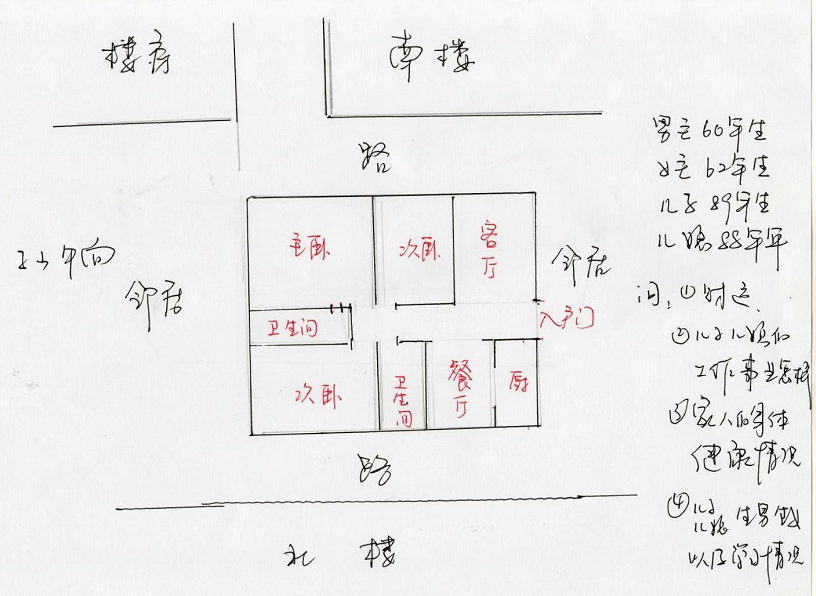 楼房
南楼
路
男主60年生
女主62年生
儿子89年生
儿媳88年军
壬山午向
邻居
主卧
次卧
客厅
邻居
问：①财运.
入户门
卫生间
②儿子儿媳的
工作事业怎样
次卧
卫生间
餐厅
厨
③家人的身体
健康情况
路
④儿子
儿媳生男生女
以及学习情况
北 楼